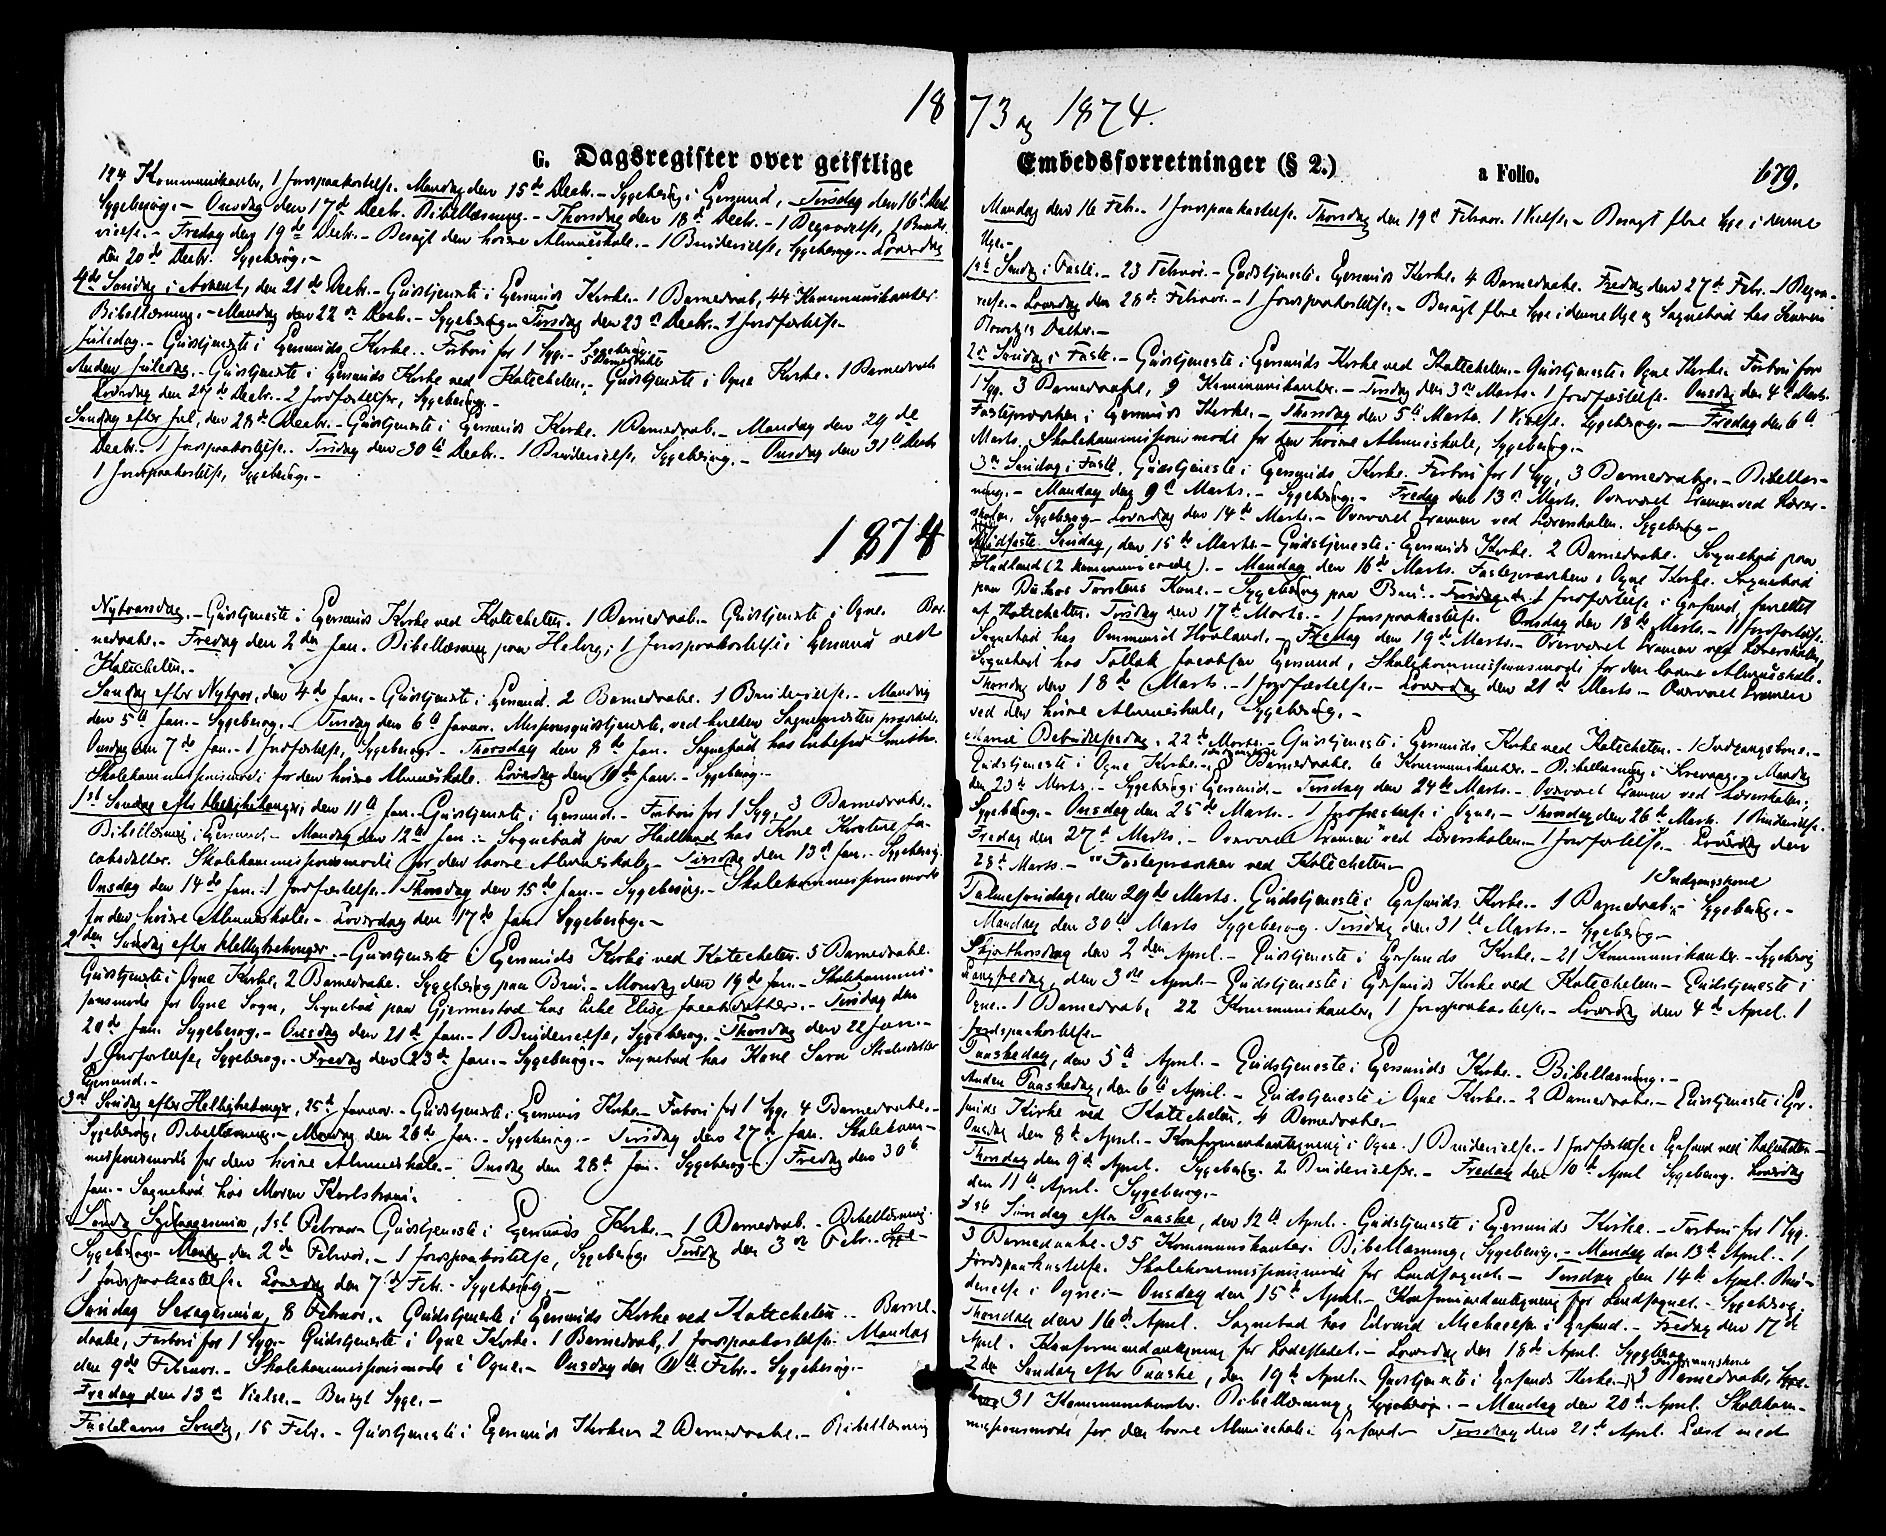 1873 og 1874.
G. Dagsregister over geistlige Embedsforretninger (§ 2.) a Folio. 679.
194 Kommunikanter, 1 Jordpaakastelse. Mandag den 15de Decbr. – Sygebesøg i Egersund, – Tirsdag den 16de Decbr.
Sygebesøg. – Onsdag den 17de Decbr. Bibellæsning. – Thorsdag den 18de Decbr. – 1 Begravelse, 1 Brude-
vielse. – Fredag den 19de Decbr. – Besøgt den høiere Almueskole. – 1 Brudevielse, Sygebesøg. – Løverdag
den 20de Decbr. Sygebesøg. –
4de Søndag i Advent, den 21de Decbr. – Gudstjeneste i Egersunds Kirke. – 1 Barnedaab, 44 Kommunikanter.
Bibellæsning. – Mandag den 22de Decbr. – Sygebesøg. Tirsdag den 23de Decbr. – 1 Jordfæstelse. –
Juledag. – Gudstjeneste i Egersunds Kirke. – Forbøn for 1 Syg. – Sygebesøg. –
5 Barnedaabe
Anden Juledag. – Gudstjeneste i Egersunds Kirke ved Katecheten. – Gudstjeneste i Ogne Kirke. 1 Barnedaab
Løverdag den 27de Decbr. – 2 Jordfæstelser, Sygebesøg. –
Søndag efter Jul, den 28de Decbr. – Gudstjeneste i Egersunds Kirke. 1 Barnedaab. – Mandag den 29de
Decbr. – 1 Jordpaakastelse. Tirsdag den 30te Decbr. – 1 Brudevielse, Sygebesøg. – Onsdag den 31te Decbr
1 Jordpaakastelse, Sygebesøg. –
1874
Nytaarsdag. – Gudstjeneste i Egersunds Kirke ved Katecheten. 1 Barnedaab. – Gudstjeneste i Ogne. Bar-
nedaabe. – Fredag den 2den Jan. Bibellæsning paa Heberg; 1 Jordpaakastelse i Egersund ved
Katecheten. –
Søndag efter Nytaar, den 4de Jan. – Gudstjeneste i Egersund. 2 Barnedaabe. 1 Brudevielse. – Mandag
den 5te Jan. – Sygebesøg. – Tirsdag den 6te Januar. Missionsgudstjeneste, ved hvilken Sognepresten prædikede.
Onsdag den 7de Jan. – 1 Jordfæstelse, Sygebesøg. – Thorsdag den 8de Jan. Sognebud hos
Skolekommissionsmøde for den høiere Almueskole. Løverdag den 10de Jan. – Sygebesøg. –
1ste Søndag efter Helligtrekonger, den 11te Jan. Gudstjeneste i Egersund. – Forbøn for 1 Syg, 3 Barnedaabe. –
Bibellæsning i Egersund. – Mandag den 12te Jan. – Sognebud paa Hadland hos Kone Kirstene Ja-
cobsdatter. Skolekommissionsmøde for den lavere Almueskole – Tirsdag den 13de Jan. – Sygebesøg.
Onsdag den 14de Jan. – 1 Jordfæstelse. Thorsdag den 15de Jan. – Sygebesøg. – Skolekommissionsmøde
for den høiere Almueskole. – Løverdag den 17de Jan Sygebesøg. –
2den Søndag efter Helligtrekonger. – Gudstjeneste i Egersunds Kirke ved Katecheten. 5 Barnedaabe.
Gudstjeneste i Ogne Kirke, 2 Barnedaabe. Sygebesøg paa Brui. – Mandag den 19de Jan. – Skolekommis-
sionsmøde for Ogne Sogn, Sognebud paa Gjermestad hos Enke Elise Jacobsdatter. – Tirsdag den
20de Jan. Sygebesøg. – Onsdag den 21de Jan. – 1 Brudevielse, Sygebesøg. – Thorsdag den 22 Jan. –
1 Jordfæstelse, Sygebesøg. – Fredag den 23de Jan. – Sygebesøg. – Sognebud hos Kone Sara
Egersund. –
3die Søndag efter Helligtrekonger, 25de Januar. – Gudstjeneste i Egersunds Kirke. – Forbøn for 1 Syg, 4 Barnedaabe. –
Sygebesøg, Bibellæsning. – Mandag den 26de Jan. – Sygebesøg. – Tirsdag den 27de Jan. Skolekom-
missionsmøde for den høiere Almueskole. – Onsdag den 28de Jan. Sygebesøg. – Fredag den 30te
Jan. – Sognebud hos Maren
Søndag Septuagesima, 1ste Februar. Gudstjeneste i Egersunds Kirke. – 1 Barnedaab. – Bibellæsning
Sygebesøg. Mandag den 2de Februar. – 1 Jordpaakastelse, Sygebesøg. Tirsdag den 3die Febr.
1 Jordpaakastelse. Løverdag den 7de Feb. – Sygebesøg. –
Søndag Sexagesima, 8 Februar. – Gudstjeneste i Egersunds Kirke ved Katecheten. – Barne-
daabe, Forbøn for 1 Syg. – Gudstjeneste i Ogne Kirke. 1 Barnedaab, 1 Jordpaakastelse. – Mandag
den 9de Februar. – Skolekommissionsmøde i Ogne. – Onsdag den 11te Febr. – Sygebesøg. –
Fredag den 13de Vielse. – Besøgt Syge. –
Fastelavns Søndag, 15 Febr. – Gudstjeneste i Egersunds Kirke 2 Barnedaabe. – Bibellæsning
Mandag den 16 Febr. – 1 Jordpaakastelse. Thorsdag den 19de Februar. 1 Vielse. – Besøgt flere Syge i denne
Uge. –
1ste Søndag i Faste. – 23 Februar. – Gudstjeneste i Egersunds Kirke. 4 Barnedaabe. Fredag den 27de Febr. – 1 Begra-
velse. – Løverdag den 28de Februar. – 1 Jordpaakastelse. – Besøgt flere Syge i denne Uge og Sognebud hos
2den Søndag i Faste. – Gudstjeneste i Egersunds Kirke ved Katecheten. – Gudstjeneste i Ogne Kirke. Forbøn for
1 Syg. 3 Barnedaabe, 9 Kommunikanter. – Tirsdag den 3die Marts. 1 Jordfæstelse. Onsdag den 4de Marts.
Fasteprædiken i Egersunds Kirke. – Thorsdag den 5te Marts. 1 Vielse. Sygebesøg. – Fredag den 6te
Marts. Skolekommissionsmøde for den høiere Almueskole, Sygebesøg. –
3die Søndag i Faste. Gudstjeneste i Egersunds Kirke. Forbøn for 1 Syg, 3 Barnedaabe. – Bibellæs-
ning. – Mandag den 9de Marts. – Sygebesøg. – Fredag den 13de Marts. Overværet Examen ved Lærer-
skolen, Sygebesøg. – Løverdag den 14de Marts. – Overværet Examen ved Lærerskolen. Sygebesøg –
Midfaste Søndag, den 15de Marts. – Gudstjeneste i Egersunds Kirke. 2 Barnedaabe. Sognebud paa
Hadland (2 kommunicerede). – Mandag den 16de Marts. Fasteprædiken i Ogne Kirke. Sognebud
paa Torstens Kone. – Sygebesøg paa Brui. – 1 Jordfæstelse i Egersund, forrettet
af Katecheten. Tirsdag den 17de Marts. – 1 Jordpaakastelse. Onsdag den 18de Marts. – 1 Jordfæstelse.
Sognebud hos Ommund Hovland. – Fredag den 19de Marts. – Overværet Examen ved Lærerskolen,
Sognebud hos Tollak Jacobsen Egersund, Skolekommissionsmøde for den lavere Almueskole.
Thorsdag den 18de Marts. – 1 Jordfæstelse. – Løverdag den 21de Marts. – Overværet Examen
ved den høiere Almueskole, Sygebesøg. –
Mariæ Bebudelsesdag, 22de Marts. – Gudstjeneste i Egersunds Kirke ved Katecheten. – 1 Indgangskone. –
Gudstjeneste i Ogne Kirke. – Barnedaabe. 6 Kommunikanter. – Bibellæsning i – Mandag
den 23de Marts. – Sygebesøg i Egersund. – Tirsdag den 24de Marts. – Overværet Examen ved Lærerskolen;
Sygebesøg. – Onsdag den 25de Marts. 1 Jordfæstelse i Ogne. – Thorsdag den 26de Marts. 1 Brudevielse.
Fredag den 27de Marts. – Overværet Examen ved Lærerskolen. – 1 Jordfæstelse. – Løverdag den
28de Marts. – Fasteprædiken ved Katecheten –
1 Indgangskone
Palmesøndag, den 29de Marts. Gudstjeneste i Egersunds Kirke. – 1 Barnedaab. – Sygebesøg. –
Mandag den 30te Marts Sygebesøg. Tirsdag den 31te Marts. – Sygebesøg –
Skjærthorsdag den 2den April. – Gudstjeneste i Egersunds Kirke. – 21 Kommunikanter. – Sygebesøg
Langfredag, den 3die April. – Gudstjeneste i Egersunds Kirke ved Katecheten – Gudstjeneste i
Ogne. – 1 Barnedaab, 22 Kommunikanter, 1 Jordpaakastelse. – Løverdag den 4de April. 1
Jordpaakastelse –
Paaskedag, den 5te April. – Gudstjeneste i Egersunds Kirke. – Bibellæsning. –
Anden Paaskedag, den 6te April. – Gudstjeneste i Ogne Kirke. – 2 Barnedaabe. – Gudstjeneste i Eger-
sunds Kirke ved Katecheten, 4 Barnedaabe. –
Onsdag den 8de April. – Konfirmandantegning i Ogne. 1 Brudevielse. – 1 Jordfæstelse i Egersund ved Katecheten –
Thorsdag den 9de April. Sygebesøg. 2 Brudevielser. – Fredag den 10de April Sygebesøg. Løverdag
den 11te April. Sygebesøg. –
1ste Søndag efter Paaske, den 12te April. Gudstjeneste i Egersunds Kirke. – Forbøn for 1 Syg.
3 Barnedaabe. 35 Kommunikanter. Bibellæsning, Sygebesøg. – Mandag den 13de April. – 1
Jordpaakastelse. Skolekommissionsmøde for Landsognet. – Tirsdag den 14de April. Bru-
devielse i Ogne. – Onsdag den 15de April. – Konfirmandantegning for Landsognet. – Sygebesøg.
Thorsdag den 16de April. Sognebud hos Edvard Michaelsen i Egersund. – Fredag den 17de
April. Konfirmandantegning for Ladestedet. – Løverdag den 18de April. Sygebesøg
2den Søndag efter Paaske, den 19de April. – Gudstjeneste i Egersunds Kirke. – 3 Barnedaabe.
31 Kommunikanter. Bibellæsning, Sygebesøg. – Mandag den 20de April. Skolekom-
missionsmøde for den lavere Almueskole i Egersund – Tirsdag den 21de April. Læst med